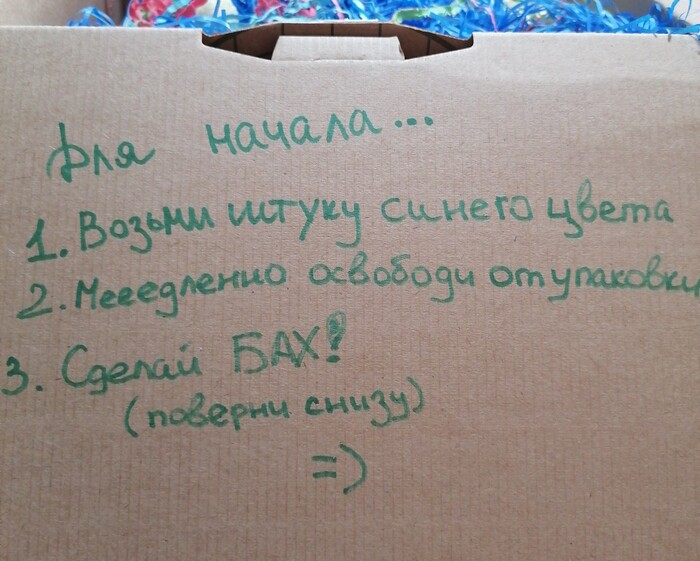 Для начала...
1. Возьми штуку синего цвета
2. Мееедленно освободи от упаковки
3. Сделай БАХ!
(поверни снизу)
=)